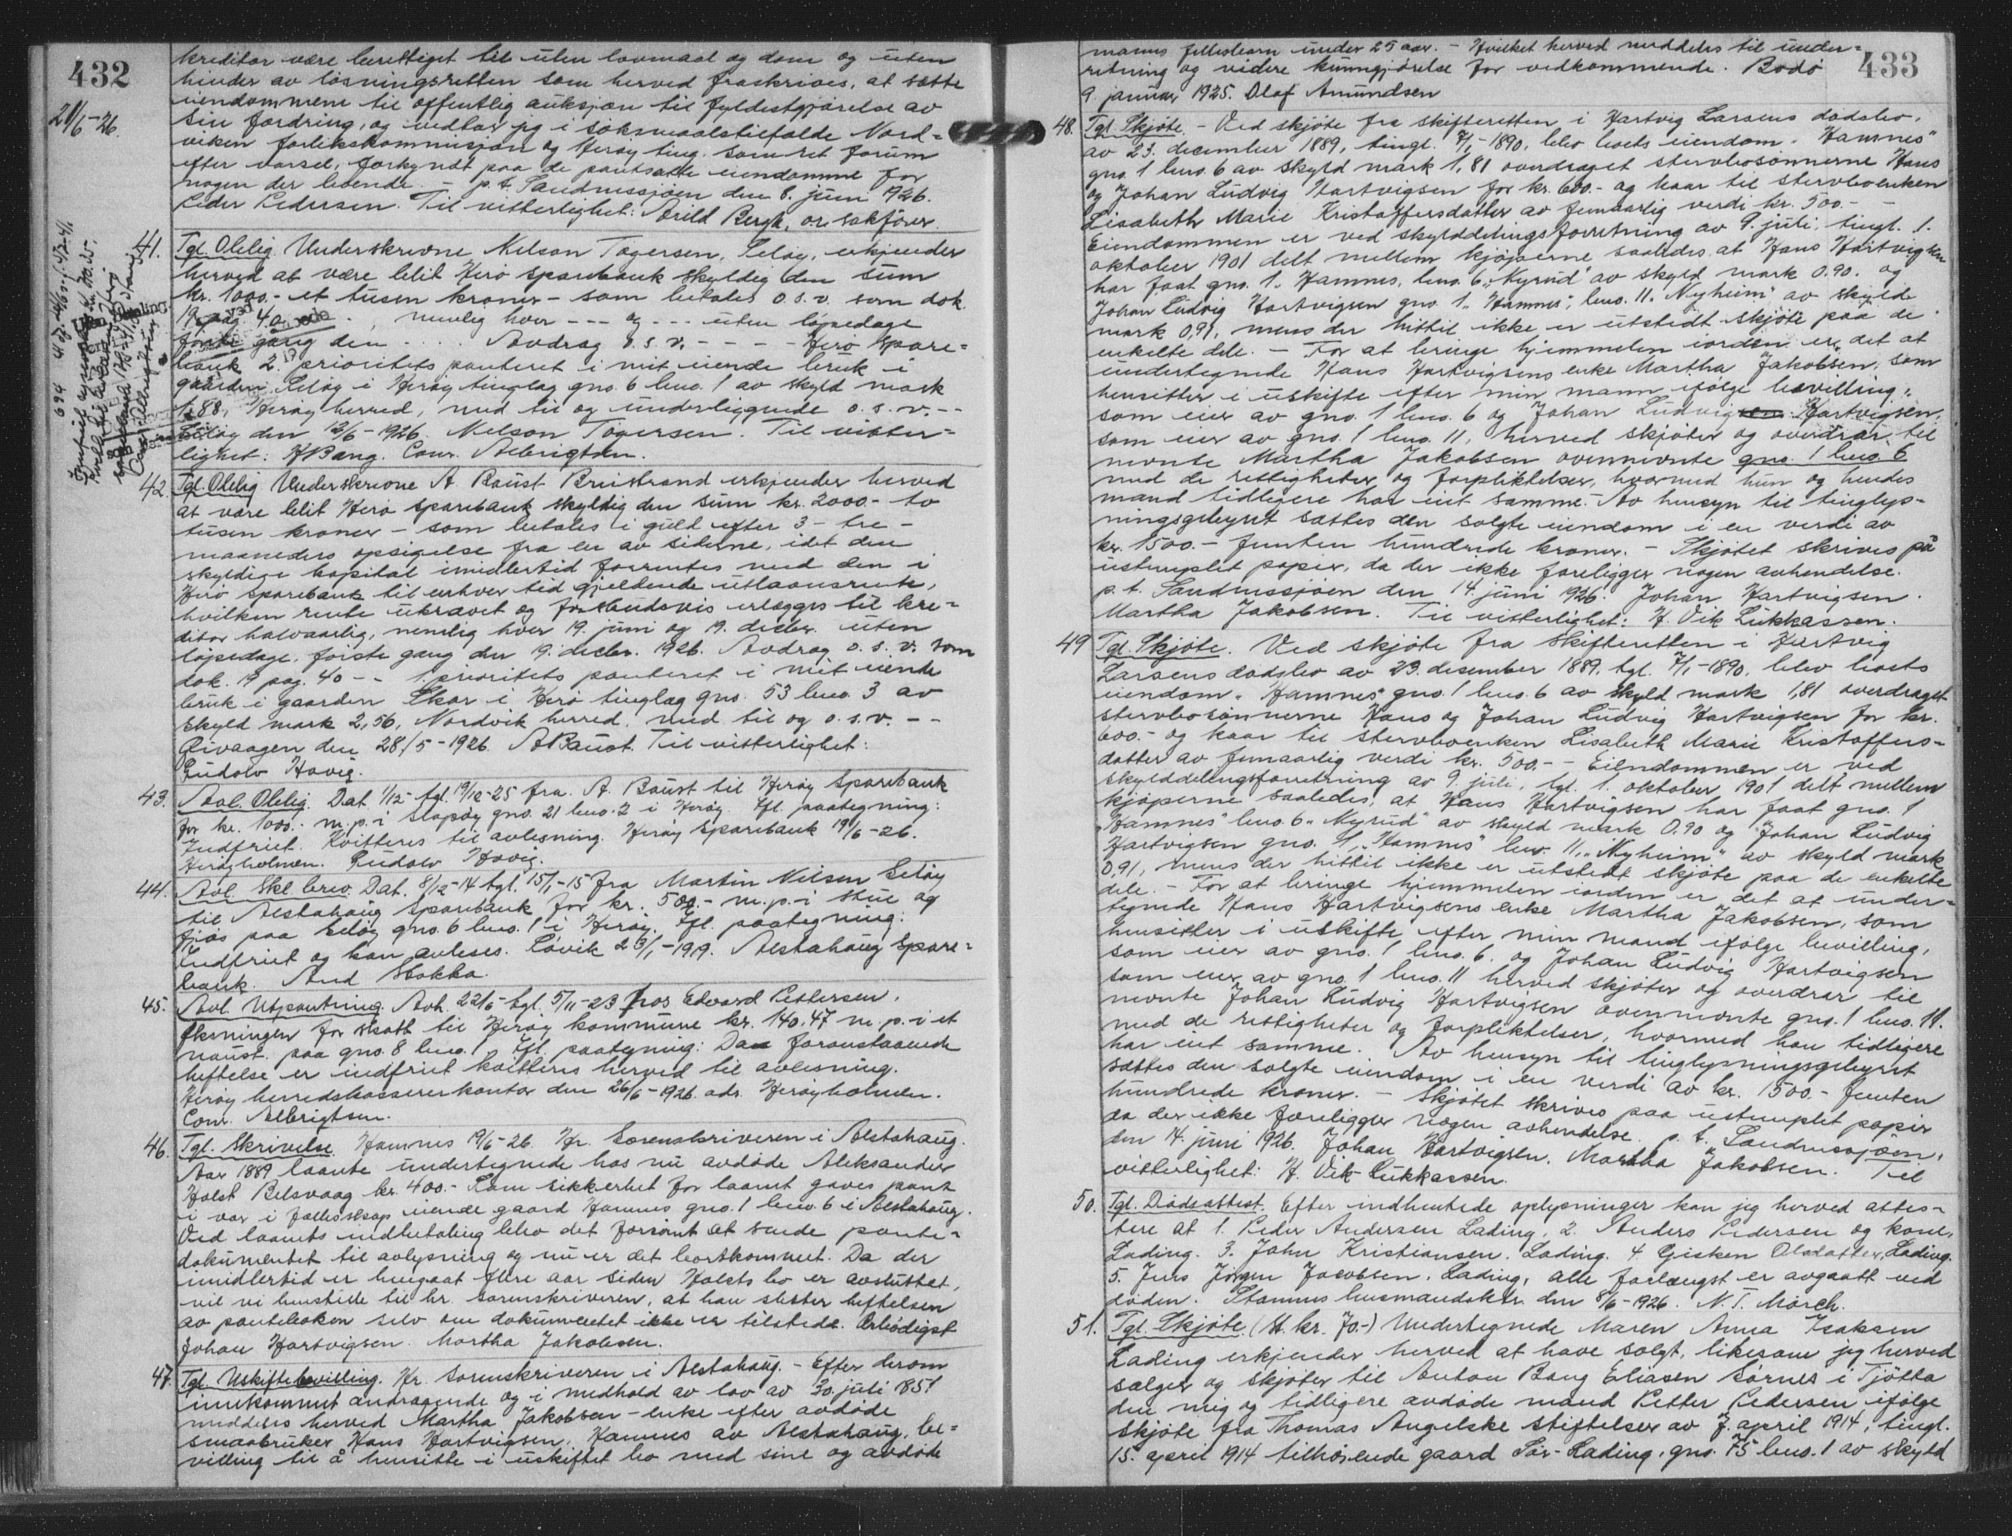 432
20/6-26.
kreditor være berettiget til uten lovmaal og dom og uten
hinder av løsningsretten som herved fraskrives, at sætte
eiendommene til offentlig auksjon til fyldestgjørelse av
sin fordring, og vedtar jeg i søksmaalstilfælde Nord-
viken forlikskommission og Herøy ting som ret forum
efter varsel, forkyndt paa de pantsatte eiendomme for
nogen der boende. - p.t. Sandnessjøen den 8. juni 1926.
Peder Pedersen. Til vitterlighet: Arild Bergh, o.r. sakfører.
41. Tgl. Oblig. Underskrevne Nelson Togersen, Seløy, erkjender
herved at være blit Herø sparebank skyldig den sum
kr. 1000.- et tusen kroner - som betales o.s.v. som dok.
19 pag 40 , nemlig hver --- og --- uten løpsedage
første gang den ... Avdrag o.s.v. - - - Herø Spare-
bank 2. prioritets panteret i mit eiende bruk i
gaarden Seløy i Herøy tinglag gno. 6 bno. 1 av skyld mark
1,88, Herøy herred, med til og underliggende o.s.v. --
Seløy den 12/6-1926. Nelson Togersen. Til vitter-
lighet: H Bang. Conr. Albrigtsen.
42. Tgl. Oblig. Underskrevne A. Baust Brustrand erkjender herved
at være blit Herø sparebank skyldig den sum kr. 2000.- to
tusen kroner - som betales i guld efter 3 - tre -
maaneders opsigelse fra en av siderne, idet den
skyldige kapital imidlertid forrentes med den i
Herø sparebank til enhver tid gjeldende utlaansrente,
hvilken rente ukrævet og forskudsvis erlægges til kre-
ditor halvaarlig, nemlig hver 19. juni og 19. decbr. uten
løpedage, første gang den 19. decbr. 1926. Avdrag o.s.v. som
dok. 19 pag. 40 -- 1 prioritets panteret i mit eiende
bruk i gaarden Skar i Herø tinglag gno. 53 bno. 3 av
skyld mark 2,56, Nordvik herred, med til og o.s.v. --
den 28/5-1926. A Baust. Til vitterlighet:
Ludolv Hovig.
43. Avl. Oblig. Dat. 1/12 tgl. 19/12-25 fra A. Baust til Herøy Sparebank
for kr. 1000.- m.p. i Slapøy gno. 21 bno. 2 i Herøy. Ifl. paategning:
Indfriet. Kvitteres til avlesning. Herøy Sparebank 19/6-26.
Herøyholmen. Ludolv Hovig.
44. Avl. Skl. brev. Dat. 8/12-14 tgl. 15/1-15 fra Martin Nilsen Seløy
til Alstahaug Sparebank for kr. 500.- m.p. i stue og
fjøs paa Seløy gno. 6 bno. 1 i Herøy. Ifl. paategning:
Indfriet og kan avleses. Søvik 23/1-1919. Alstahaug Spare-
bank. And Stokka.
45. Avl. Utpantning. Avh. 22/6- tgl. 5/11-23 hos Edvard Pettersen,
Øksningen for skatt til Herøy kommune kr. 140.47 m.p. i et
naust paa gno. 8 bno. 1. Ifl. paategning: Da foranstaaende
heftelse er indfriet kvitteres herved til avlesning.
Herøy herredskassererkontor den 26/6-1926. adr. Herøyholmen.
Conr. Albrigtsen.
46. Tgl. Skrivelse. Hamnes 19/6-26. Hr. Sorenskriveren i Alstahaug.
Aar 1889 laante undertegnede hos nu avdøde Aleksander
Holst Belsvaag kr. 400.- Som sikkerhet for laanet gaves pant
i vor i fællesskap eiende gaard Hamnes gno. 1 bno 6 i Alstahaug.
Ved laanets indbetaling blev det forsømt at sende pante-
dokumentet til avlysning og nu er det bortkommet. Da der
imidlertid er hengaat flere aar siden Holsts bo er avsluttet,
vil vi henstille til hr. sorenskriveren, at han sletter heftelsen
av panteboken selv om dokumentet ikke er tilstede. Ærbødigst
Johan Hartvigsen. Martha Jakobsen.
47. Tgl. Uskiftebevilling. Hr. Sorenskriveren i Alstahaug. - Efter derom
innkommet andragende og i medhold av lov av 30. juli 1851
meddeles herved Martha Jakobsen - enke efter avdøde
smaabruker Hans Hartvigsen, Hamnes av Alstahaug, be-
villing til å hensitte i uskiftet bo med sine og avdøde
433
manns fellesbarn under 25 aar. - Hvilket herved meddeles til under-
retning og videre kunngjørelse for vedkommende. Bodø
9. januar 1925. Olaf Amundsen
48. Tgl. Skjøte. - Ved skjøte fra skifteretten i Hartvig Larsens dødsbo,
av 23. december 1889, tingl. 7/1-1890, blev boets eiendom "Hamnes"
gno. 1 bno. 6 av skyld mark 1,81 overdraget stervbosønnerne Hans
og Johan Ludvig Hartvigsen for kr. 600.- og kaar til stervboenken
Lisabeth Marie Kristoffersdatter av femaarlig verdi kr. 500.-
Eiendommen er ved skylddelingsforretning av 9 juli, tingl. 1.
oktober 1901 delt mellem kjøperne saaledes at Hans Hartvigsen
har faat gno. 1. Hamnes, bno. 6 "Nyrud" av skyld mark 0.90. og
Johan Ludvig Hartvigsen gno. 1. "Hamnes", bno. 11. "Nyheim" av skyld
mark 0,91, mens der hittil ikke er utstedt skjøte paa de
enkelte dele. - For at bringe hjemmelen iorden er det at
undertegnede Hans Hartvigsens enke Martha Jakobsen, som
hensitter i uskifte efter min mann ifølge bevilling,
som eier av gno. 1 bno. 6 og Johan Ludvig Hartvigsen,
som eier av gno. 1 bno. 11, herved skjøter og overdrar til
nevnte Martha Jakobsen ovennevnte gno. 1 bno. 6
med de rettigheter og forpliktelser, hvormed hun og hendes
mand tidligere har eiet samme. Av hensyn til tinglys-
ningsgebyret sættes den solgte eiendom i en verdi av
kr. 1500.- femten hundrede kroner. - Skjøtet skrives på
ustemplet papir, da der ikke foreligger nogen avhendelse.
p.t. Sandnessjøen den 14. juni 1926. Johan Hartvigsen.
Martha Jakobsen. Til vitterlighet: H. Vik Lukkassen.
49 Tgl. Skjøte. Ved skjøte fra skifteretten i Hartvig
Larsens dødsbo av 23. desember 1889, tgl. 7/1-1890, blev boets
eiendom "Hamnes" gno. 1 bno. 6 av skyld mark 1,81 overdraget
stervbosønnerne Hans og Johan Ludvig Hartvigsen for kr.
600.- og kaar til stervboenken Lisabeth Marie Kristoffers-
datter av femaarlig verdi kr. 500.-- Eiendommen er ved
skylddelingsforretning av 9 juli, tgl. 1. oktober 1901 delt mellem
kjøperne saaledes, at Hans Hartvigsen har faat gno. 1
"Hamnes" bno. 6 "Nyrud" av skyld mark 0.90 og Johan Ludvig
Hartvigsen gno. 1, "Hamnes" bno. 11, "Nyheim" av skyld mark
0,91, mens der hittil ikke er utstedt skjøte paa de enkelte
dele. - For at bringe hjemmelen iorden er det at under-
tegnede Hans Hartvigsens enke Martha Jakobsen, som
hensitter i uskifte efter min mand ifølge bevilling,
som eier av gno. 1 bno. 6. og Johan Ludvig Hartvigsen
som eier av gno. 1 bno. 11 herved skjøter og overdrar til
nevnte Johan Ludvig Hartvigsen ovennevnte gno. 1 bno. 11.
med de rettigheter og forpliktelser, hvormed han tidligere
har eiet samme. Av hensyn til tinglysningsgebyret
sættes den solgte eiendom i en verdi av kr. 1500.- femten
hundrede kroner. - Skjøtet skrives paa ustemplet papir
da der ikke foreligger nogen avhendelse. p.t. Sandnessjøen,
den 14. juni 1926. Johan Hartvigsen. Martha Jakobsen. Til
vitterlighet: H. Vik Lukkassen.
50. Tgl. Dødsattest. Efter indhentede oplysninger kan jeg herved attes-
tere at 1. Peder Andersen Lading, 2. Anders Pedersen og kone,
Lading. 3. John Kristiansen. Lading. 4 Gisken Olsdatter, Lading.
5. Jens Jørgen Jacobsen. Lading, alle forlængst er avgaatt ved
døden. Stamnes lensmandsktr. den 8/6-1926. N. T. Mörch.
51. Tgl. Skjøte. (St. kr. 70.-) Undertegnede Maren Anna Isaksen
Lading erkjender herved at have solgt, likesom jeg herved
sælger og skjøter til Anton Bang Eliasen Sørnes i Tjøtta
den mig og tidligere avdøde mand Petter Pedersen ifølge
skjøte fra Thomas Angelske stiftelser av 7. april 1914, tingl.
15. april 1914 tilhørende gaard Sør-Lading, gno. 75 bno. 1 av skyld